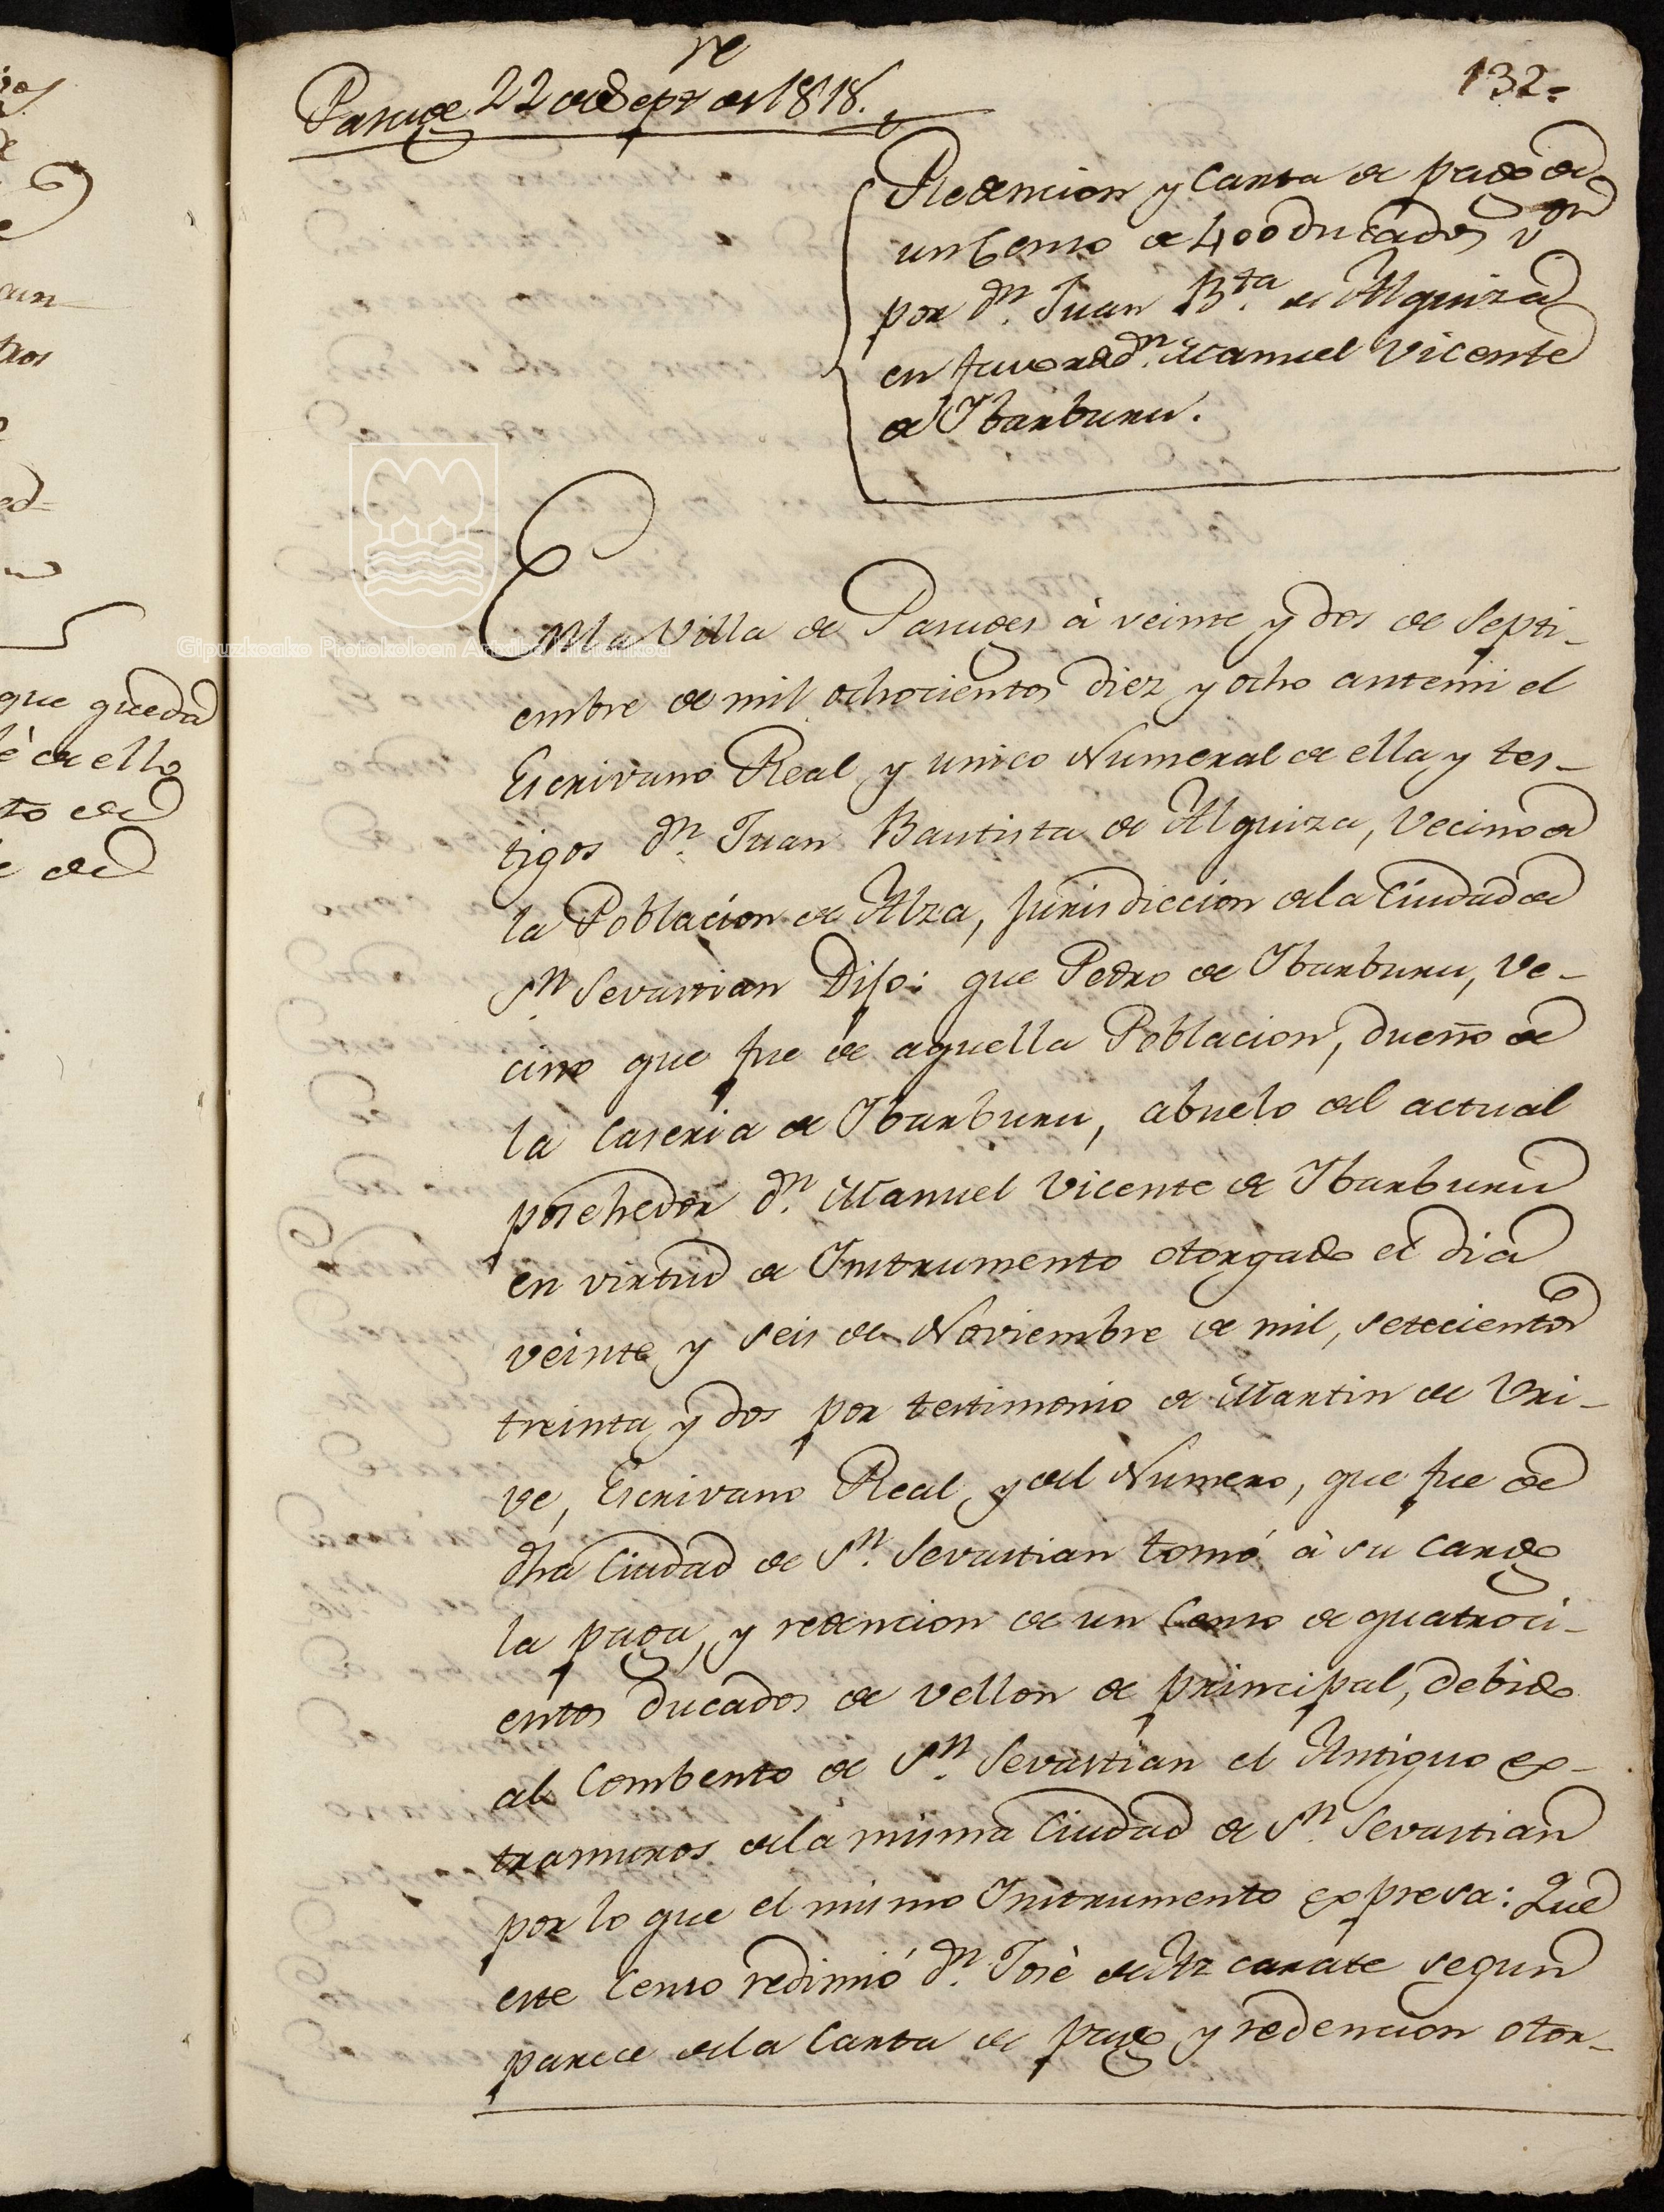 132=
Pasage 22 de Sepre de 1818.
Redencion y Carta de pago de
un Censo de 400 Ducados von
por Dn. Juan Bta. de Alquiza
en favor de Dn. Manuel Vicente
de Ybarburu.
En la Villa de Pasages à veinte y dos de Septi-
embre de mil ochocientos diez y ocho ante mi el
Escrivano Real y unico Numeral de ella y tes-
tigos Dn. Juan Bautista de Alquiza, Vecino de
la Poblacion de Alza, Jurisdiccion de la Ciudad de
Sn. Sevastian Dijo: que Pedro de Ybarburu, Ve-
cino que fue de aquella Poblacion, dueño de
la Caseria de Ybarburu, abuelo del actual
posehedor Dn. Manuel Vicente de Ybarburu
en virtud de Instrumento otorgado el dia
veinte y seis de Noviembre de mil, setecientos
treinta y dos por testimonio de Martin de Uri-
ve, Escrivano Real, y del Numero, que fue de
dha Ciudad de Sn. Sevastian tomó à su cargo
la paga, y redencion de un Censo de quatroci-
entos ducados de vellon de principal, debido
al Combento de Sn. Sevastian el Antiguo ex-
tramuros de la misma Ciudad de Sn. Sevastian
por lo que el mismo Instrumento expresa: Que
este Censo redimió Dn. Josè de Azcarate segun
parece de la Carta de pago y redencion otor-
que queda
de ello
to de
de
Gipuzkoako Protokoloen Artxibo Historikoa